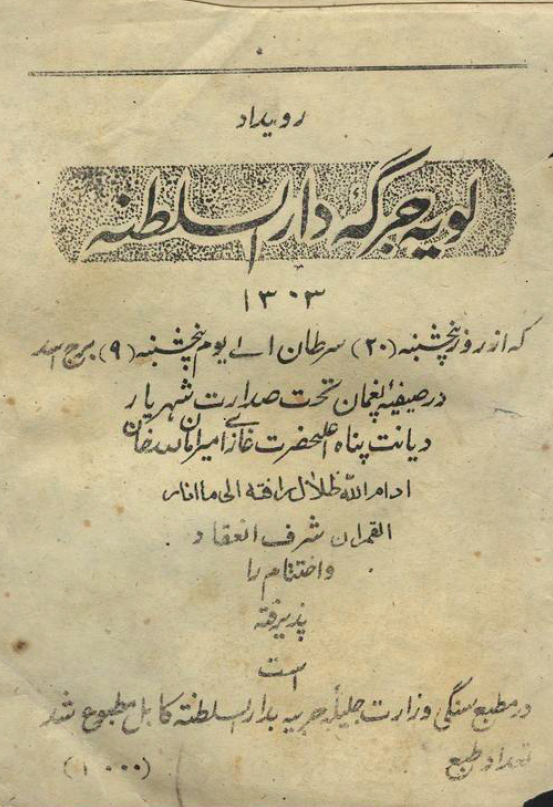 رویداد
لویه جرگهٔ دار السلطنه
۱۳۰۳
که از روز پنجشنبه (۲۰) سرطان الے یوم پنجشنبه (۹) برج اسد
در صیفیهٔ پغمان تحت صدارت شهریار
دیانت پناه اعلیحضرت غازے امیر امان الله خان
ادام الله ظلال رافته الی ما انار
القمران شرف انعقاد
و اختتام را
پذیرفته
است
در مطبع سنگی وزارت جلیلهٔ حربیه بدار السلطنهٔ کابل مطبوع شد
تعداد طبع (۱۰۰۰)